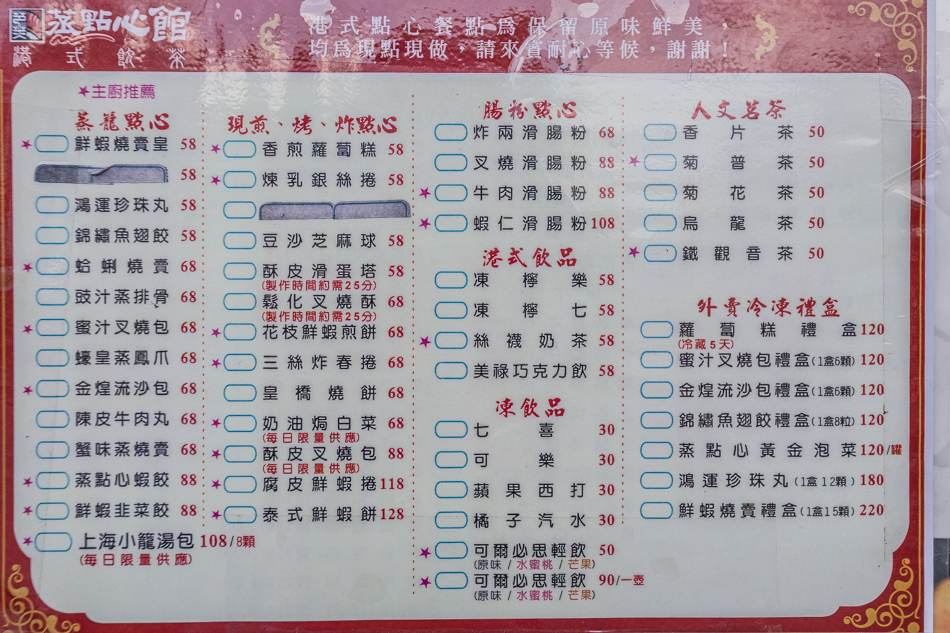 蒸點心館
港式飲茶
港式點心餐點為保留原味鮮美，
均為現點現做，請來賓耐心等候，謝謝！
★主廚推薦
蒸籠點心
★鮮蝦燒賣皇 58
58
鴻運珍珠丸 58
錦繡魚翅餃 58
★蛤蜊燒賣 68
豉汁蒸排骨 68
★蜜汁叉燒包 68
蠔皇蒸鳳爪 68
★金煌流沙包 68
陳皮牛肉丸 68
蟹味蒸燒賣 68
★蒸點心蝦餃 88
★鮮蝦韭菜餃 88
★上海小籠湯包 108/8顆
(每日限量供應)
現煎、烤、炸點心
★香煎蘿蔔糕 58
★煉乳銀絲捲 58
豆沙芝麻球 58
酥皮滑蛋塔 58
(製作時間約需25分)
鬆化叉燒酥 68
(製作時間約需25分)
★花枝鮮蝦煎餅 68
★三絲炸春捲 68
皇橋燒餅 68
★奶油焗白菜 68
(每日限量供應)
★酥皮叉燒包 88
(每日限量供應)
★腐皮鮮蝦捲 118
★泰式鮮蝦餅 128
腸粉點心
炸兩滑腸粉 68
叉燒滑腸粉 88
★牛肉滑腸粉 88
★蝦仁滑腸粉 108
港式飲品
凍檸樂 58
凍檸七 58
★絲襪奶茶 58
美祿巧克力飲 58
凍飲品
七喜 30
可樂 30
蘋果西打 30
橘子汽水 30
★可爾必思輕飲 50
(原味/水蜜桃/芒果)
★可爾必思輕飲 90/一壺
(原味/水蜜桃/芒果)
人文茗茶
香片茶 50
★菊普茶 50
菊花茶 50
烏龍茶 50
★鐵觀音茶 50
外賣冷凍禮盒
蘿蔔糕禮盒 120
(冷藏5天)
蜜汁叉燒包禮盒(1盒6顆) 120
金煌流沙包禮盒(1盒6顆) 120
錦繡魚翅餃禮盒(1盒8粒) 120
蒸點心黃金泡菜 120/罐
鴻運珍珠丸(1盒12顆) 180
鮮蝦燒賣禮盒(1盒15顆) 220